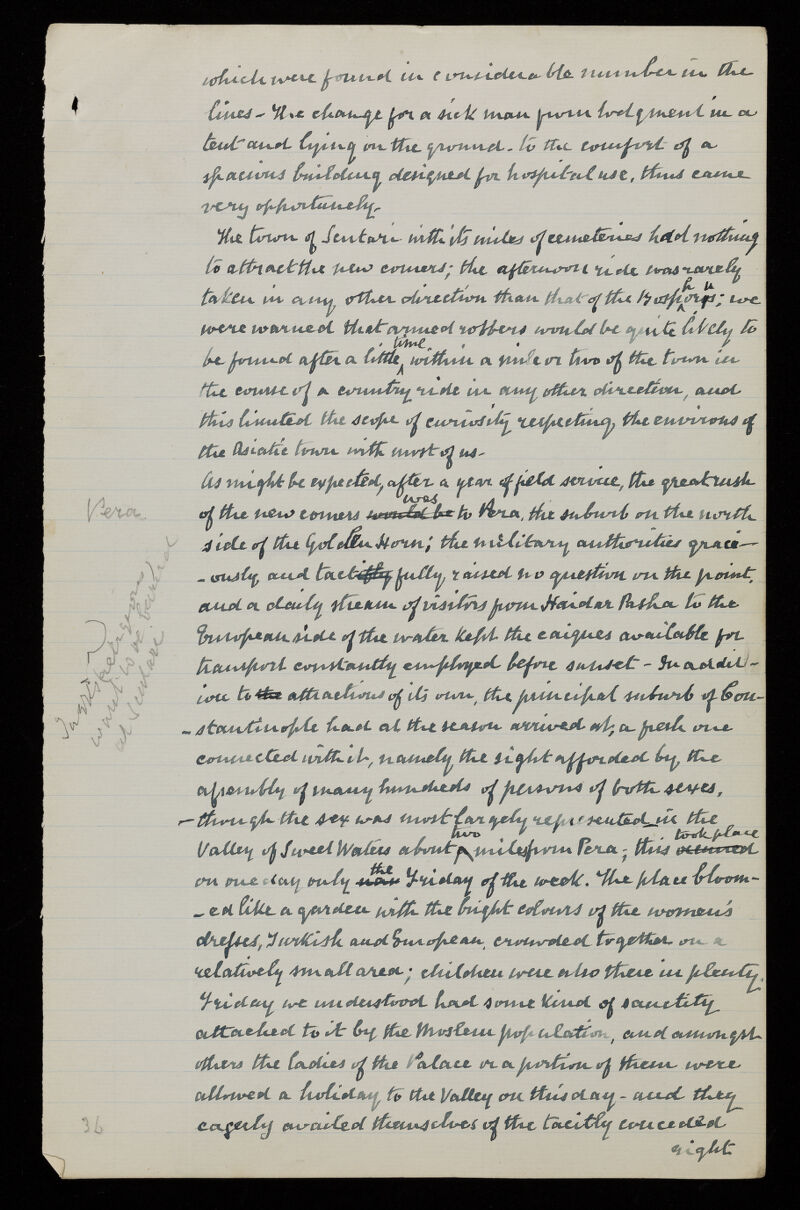 which were found in considerable number in the
lines - The change for a sick man from lodgment in a
tent and lying on the ground - to the comfort of a
spacious building designed for hospital use, thus came
very opportunely -
The town of Scutari with its miles of cemeteries had nothing
to attract the new comers; the afternoon ride was rarely
taken in any other direction than that of the Bosphorus; we
were warned that armed robbers would be quite likely to
be found after a little time, within a mile or two of the town in
the course of a country ride in any other direction, and
this limited the scope of curiosity respecting the environs of
the Asiatic town with most of us -
As might be expected, after a year of field service, the great rush
Pera
of the new comers would be was to Pera, the suburb on the north
side of the Golden Horn; the military authorities graci-
-ously, and tactfully, raised no question on the point,
and a daily stream of visitors from Haidar Pasha to the
European side of the water kept the caiques available for
transport constantly employed before sunset - In addit-
ion to the attractions of its own, the principal suburb of Con-
-stantinople had at the season arrived at, a fresh one
connected with it, namely the sight afforded by the
assembly of many hundreds of persons of both sexes,
- though the sex was most largely represented in the
Valley of Sweet Waters about two miles from Pera; this occurred took place
on one day only was the Friday of the week. The place bloom-
-ed like a garden with the bright colours of the women's
dresses, Turkish and European, crowded together on a
relatively small area; children were also there in plenty.
Friday we understood had some kind of sanctity
attached to it by the Moslem population, and amongst
others the ladies of the Palace or a portion of them were
allowed a holiday to the Valley on this day - and they
eagerly availed themselves of the tacitly conceded
right
want to be buried
at Scutari
36